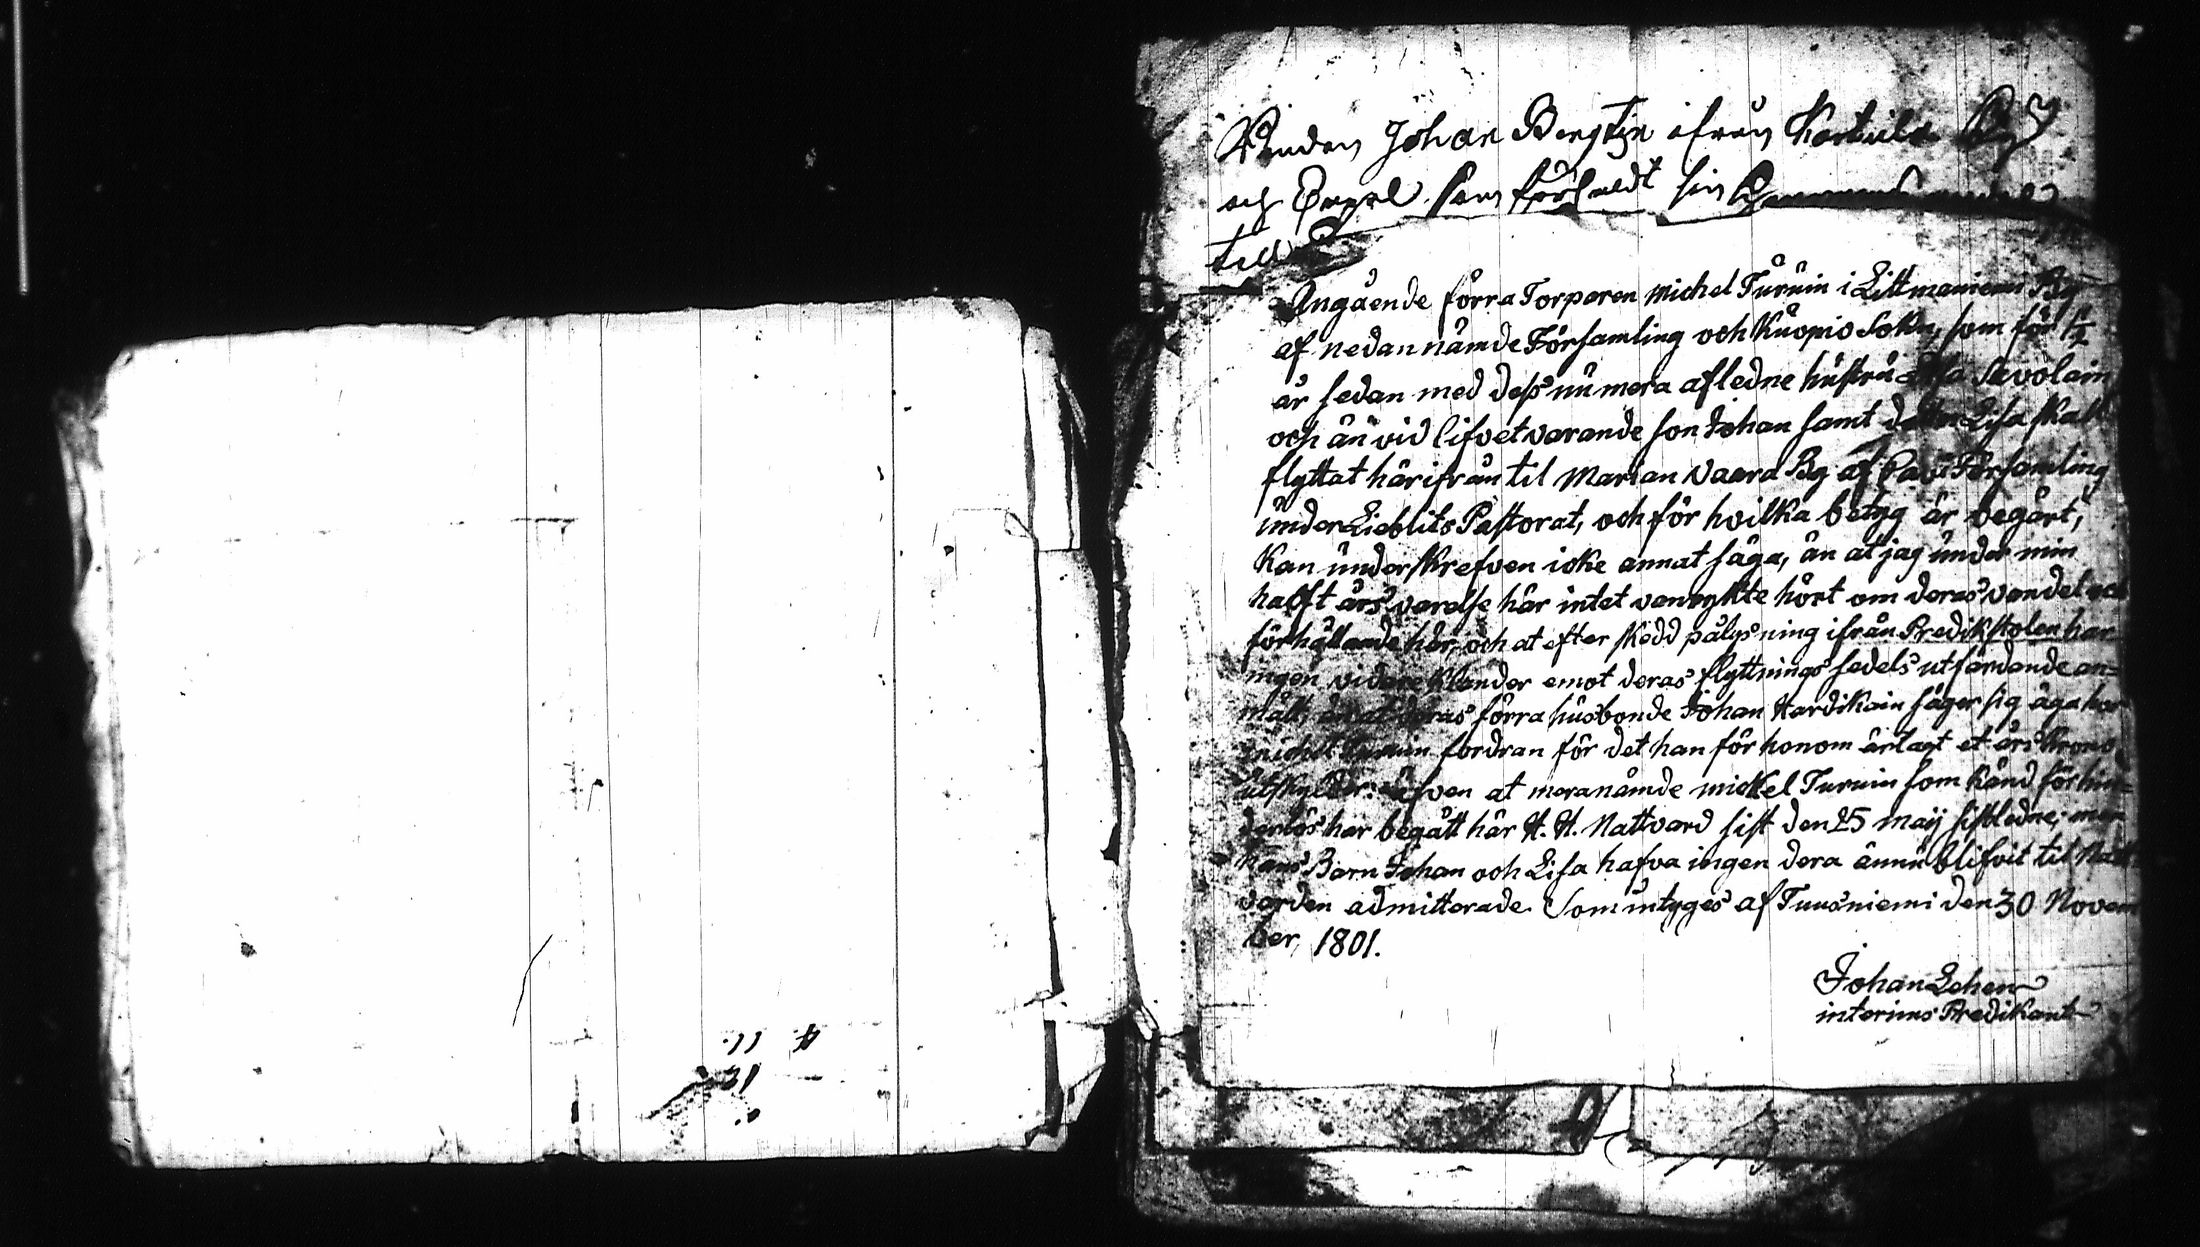 Johan Bergtin ifrån By
och som
till
Angående förra Torparen Michel Turuin i Littmaniemi By
af nedannämde Församling och Kuopio Sokn, som för 1/2
år sedan med dess nu mera afledne hustru Lisa Savolain
och än vid lifvet varande son Johan samt dottren Lisa skall
flyttat härifrån til Marian Vaara By af Cavi Församling
under Lieblits Pastorat, och för hvilka betyg är begärt,
Kan underskrefven icke annat säga, än at jag under min
halft års varelse här intet vanrykte hört om deras vandel och
förhållande här, och at efter skedd pålysning ifrån Predikstolen har
ingen vidare Klander emot deras flyttnings sedels utfärdande an=
mält, än at deras förra husbonde Johan Hardikain säger sig äga hos
Michel Turuin fordran för det han för honom ärlagt et års Krono
utskylder: äfven at meranämde Mickel Turuin som känd för hin=
derlös har begått här H. H. Nattvard sist den 25 Maij sistledne; men
hans Barn Johan och Lisa hafva ingen dera ännu blifvit til Natt
varden admitterade. Som intyges af Tuusniemi den 30 Novem
ber, 1801.
Johan Lehen
interims Predikant